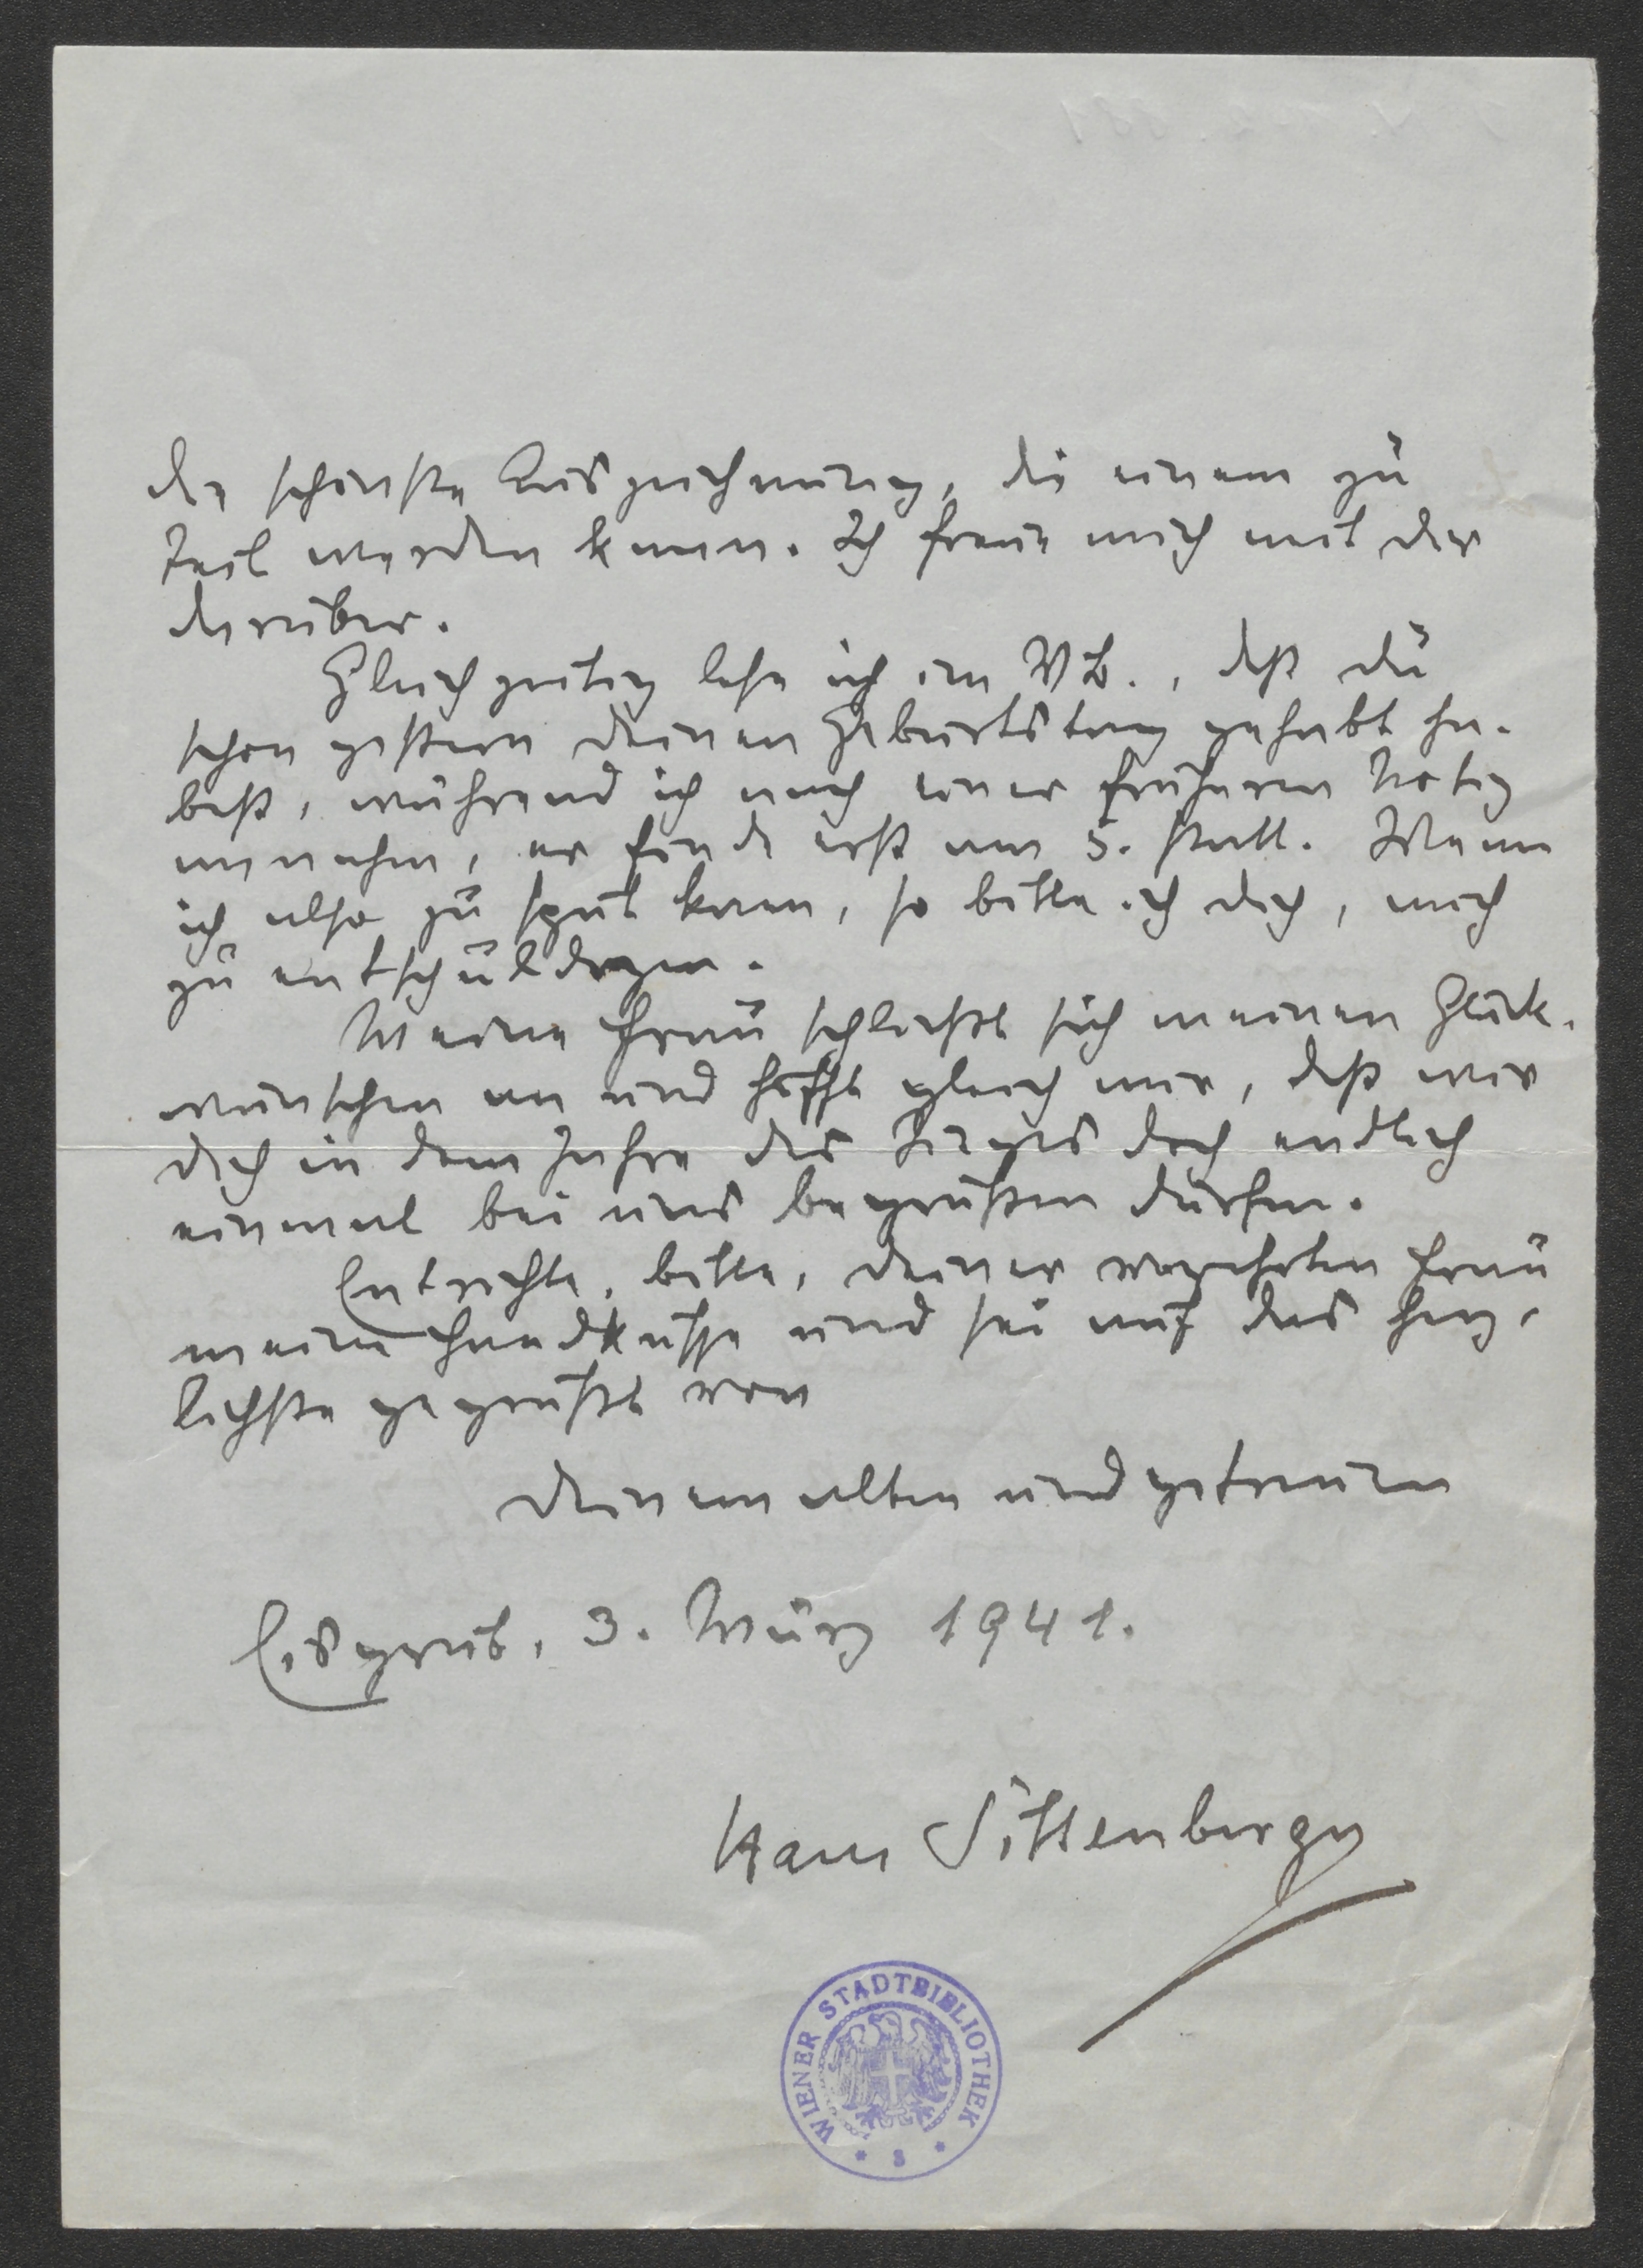 die schönste Auszeichnung, die einem zu
teil werden kann. Ich freue mich mit dir
darüber.
Gleichzeitig lese ich im VB., daß du
schon gestern deinen Geburtstag gehabt ha-
best, während ich nach einer früheren Notiz
annahm, er finde erst am 5. statt. Wenn
ich also zu spät kam, so bitte ich dich, mich
zu entschuldigen.
Meine Frau schließt sich meinen Glück-
wünschen an und hofft gleich mir, daß wir
dich in dem Jahre des Sieges doch endlich
einmal bei uns begrüßen dürfen.
Entrichte, bitte, deiner verehrten Frau
meine Handküsse und sei auf das herz-
lichste gegrüßt von
deinem alten und getreuen
Eisgrub, 3. März 1941.
Hans Sittenberger
WIENER STADTBIBLIOTHEK